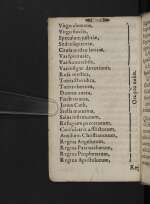 Virgo clemens,
Virgo fidelis,
Speculum justitiæ,
Sedes sapientiæ,
Causa nostræ lætitiæ,
Vas spirituale,
Vas honorabile,
Vas insigne devotionis,
Rosa mystica,
Turris Davidica,
Turris eburnea,
Domus aurea,
Fœderis arca,
Janua Cœli,
Stella matutina,
Salus infirmorum,
Refugium peccatorum,
Consolatrix afflictorum,
Auxilium Christianorum,
Regina Angelorum,
Regina Patriarcharum,
Regina Prophetarum,
Regina Apostolorum,
Ora pro nobis.
Reg